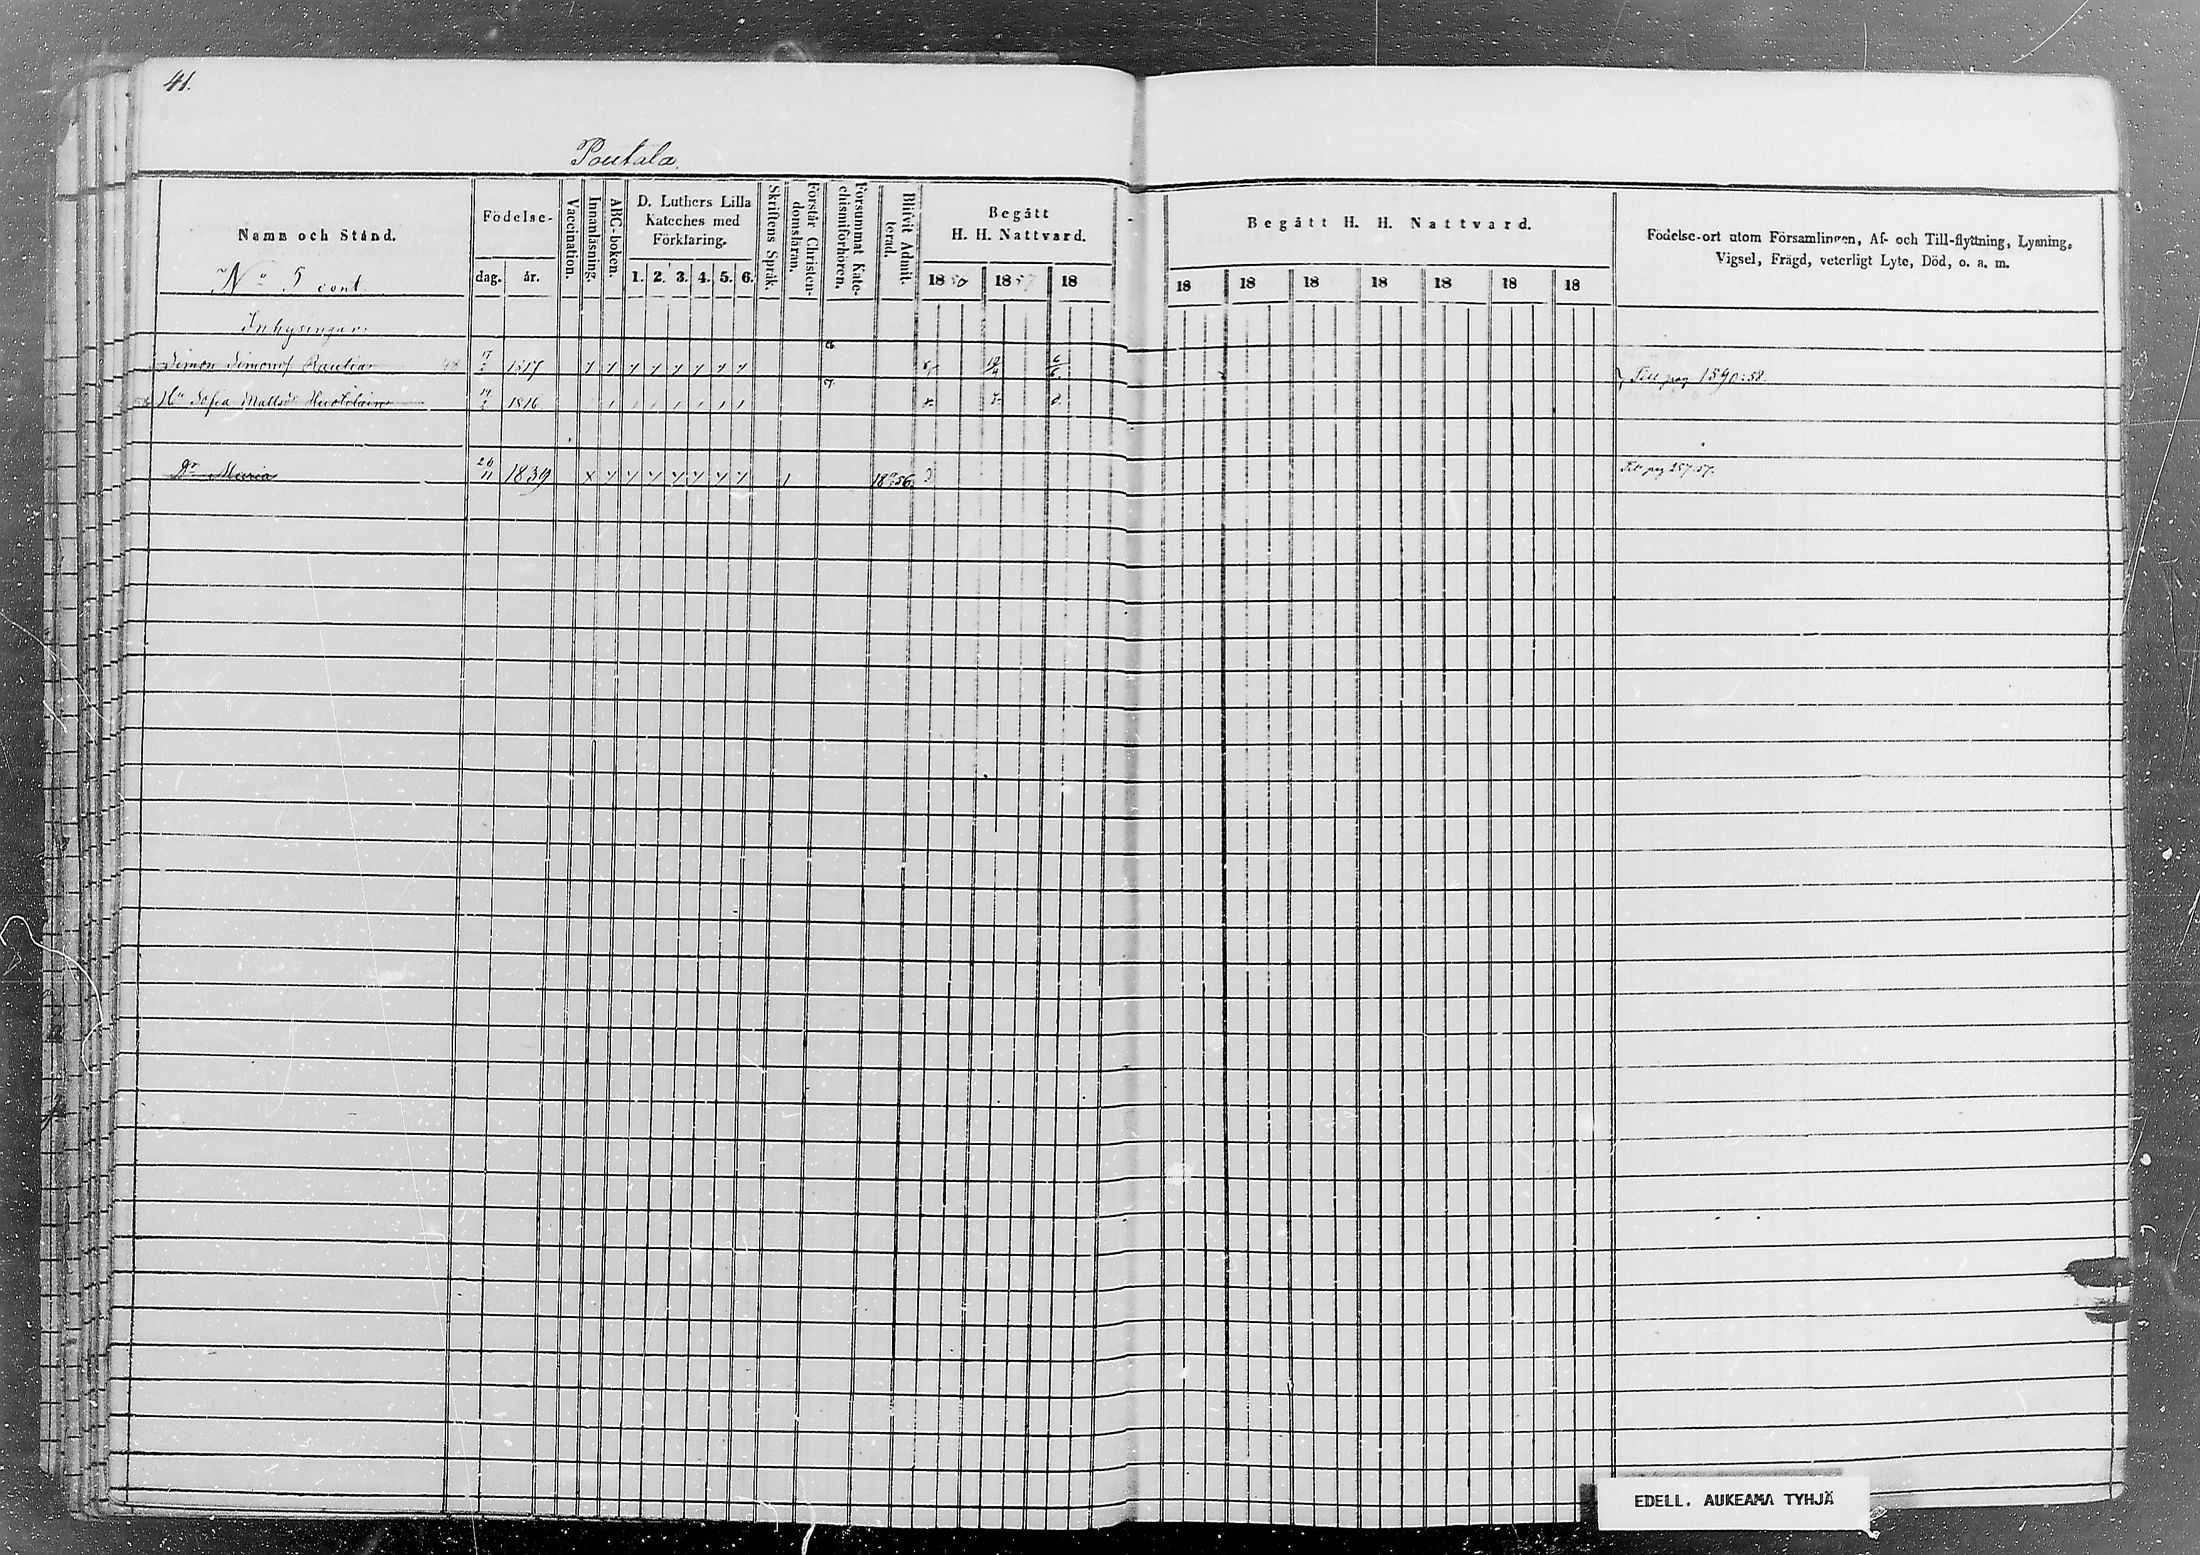 41.
Poutala.
Namn och Stånd.
Födelse-
dag. år.
Vaccination.
Innanläsning.
ABC-boken.
D. Luthers Lilla
Kateches med
Förklaring.
1. 2. 3. 4. 5. 6.
Skriftens Språk.
Förstår Christen-
domsläran.
Försummat Kate-
chismiförhören.
Blifvit Admit-
terad.
Begått
H. H. Nattvard.
18 18 57 18
Begått H. H. Nattvard.
18 18 18 18 18 18 18
Födelse-ort utom Församlingen, Af- och Till-flyttning, Lysning,
Vigsel, Frägd, veterligt Lyte, Död, o. a. m.
No 5 cont.
Inhysingar:
Simon Simons 17/2 1817 Till pag 1590:58.
Hu Sofia Matts 1816
Dr Maria 26/11 1839 1856 Till pag 257:57.
EDELL. AUKEAMA TYHJÄ